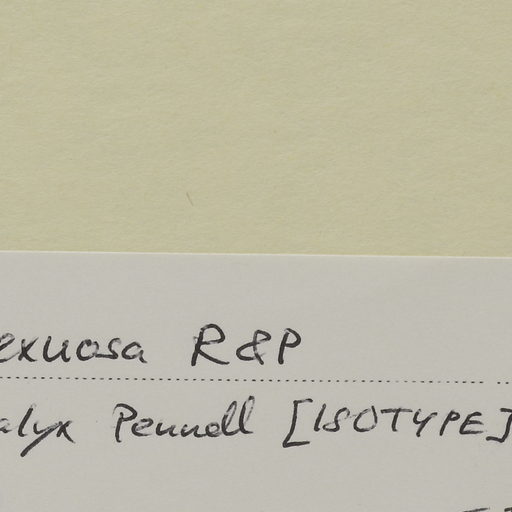 exuosa R&P
alyx Pennell [ISOTYPE]